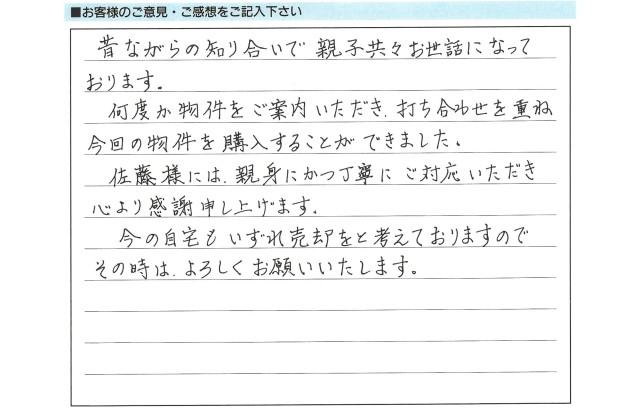 ■お客様のご意見・ご感想をご記入下さい
昔ながらの知り合いで親子共々お世話になって
おります。
何度か物件をご案内いただき、打ち合わせを重ね
今回の物件を購入することができました。
佐藤様には、親身にかつ丁寧にご対応いただき
心より感謝申し上げます。
今の自宅もいずれ売却をと考えておりますので
その時は、よろしくお願いいたします。